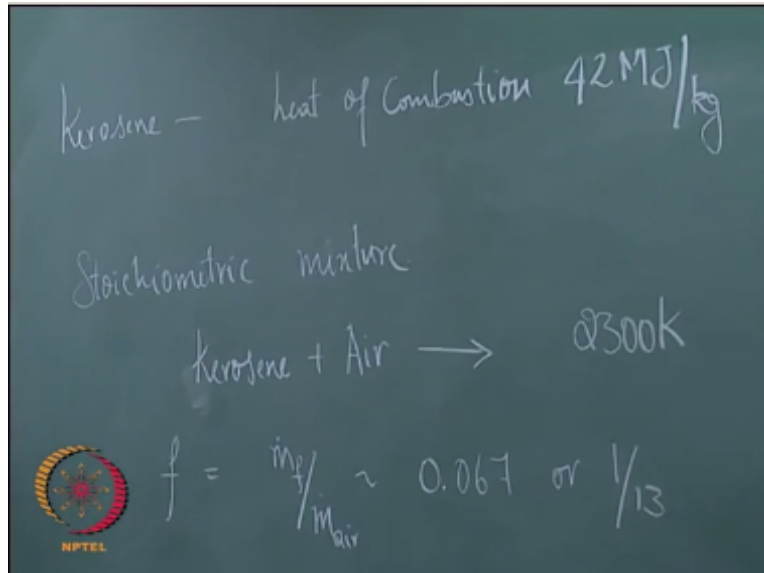 Kerosene - heat of Combustion 42 MJ/kg
Stoichiometric mixture
Kerosene + Air → 2300K
f = ṁf/ṁair ~ 0.067 or 1/13
NPTEL